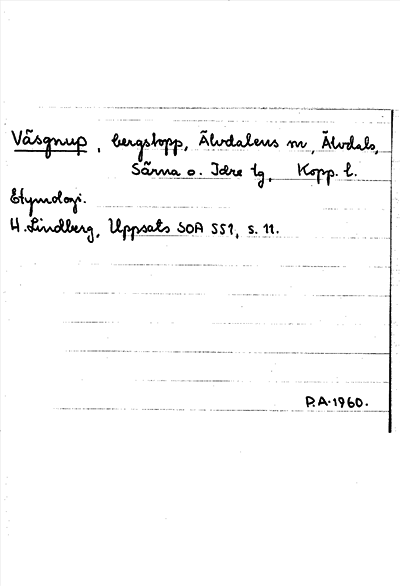 Väsgnup, bergstopp, Älvdalens m, Älvdals,
Särna o. Idre lg, Kopp. l.
Etymologi.
H. Lindberg, Uppsats SOA 551, s. 11.
P.A. 1960.